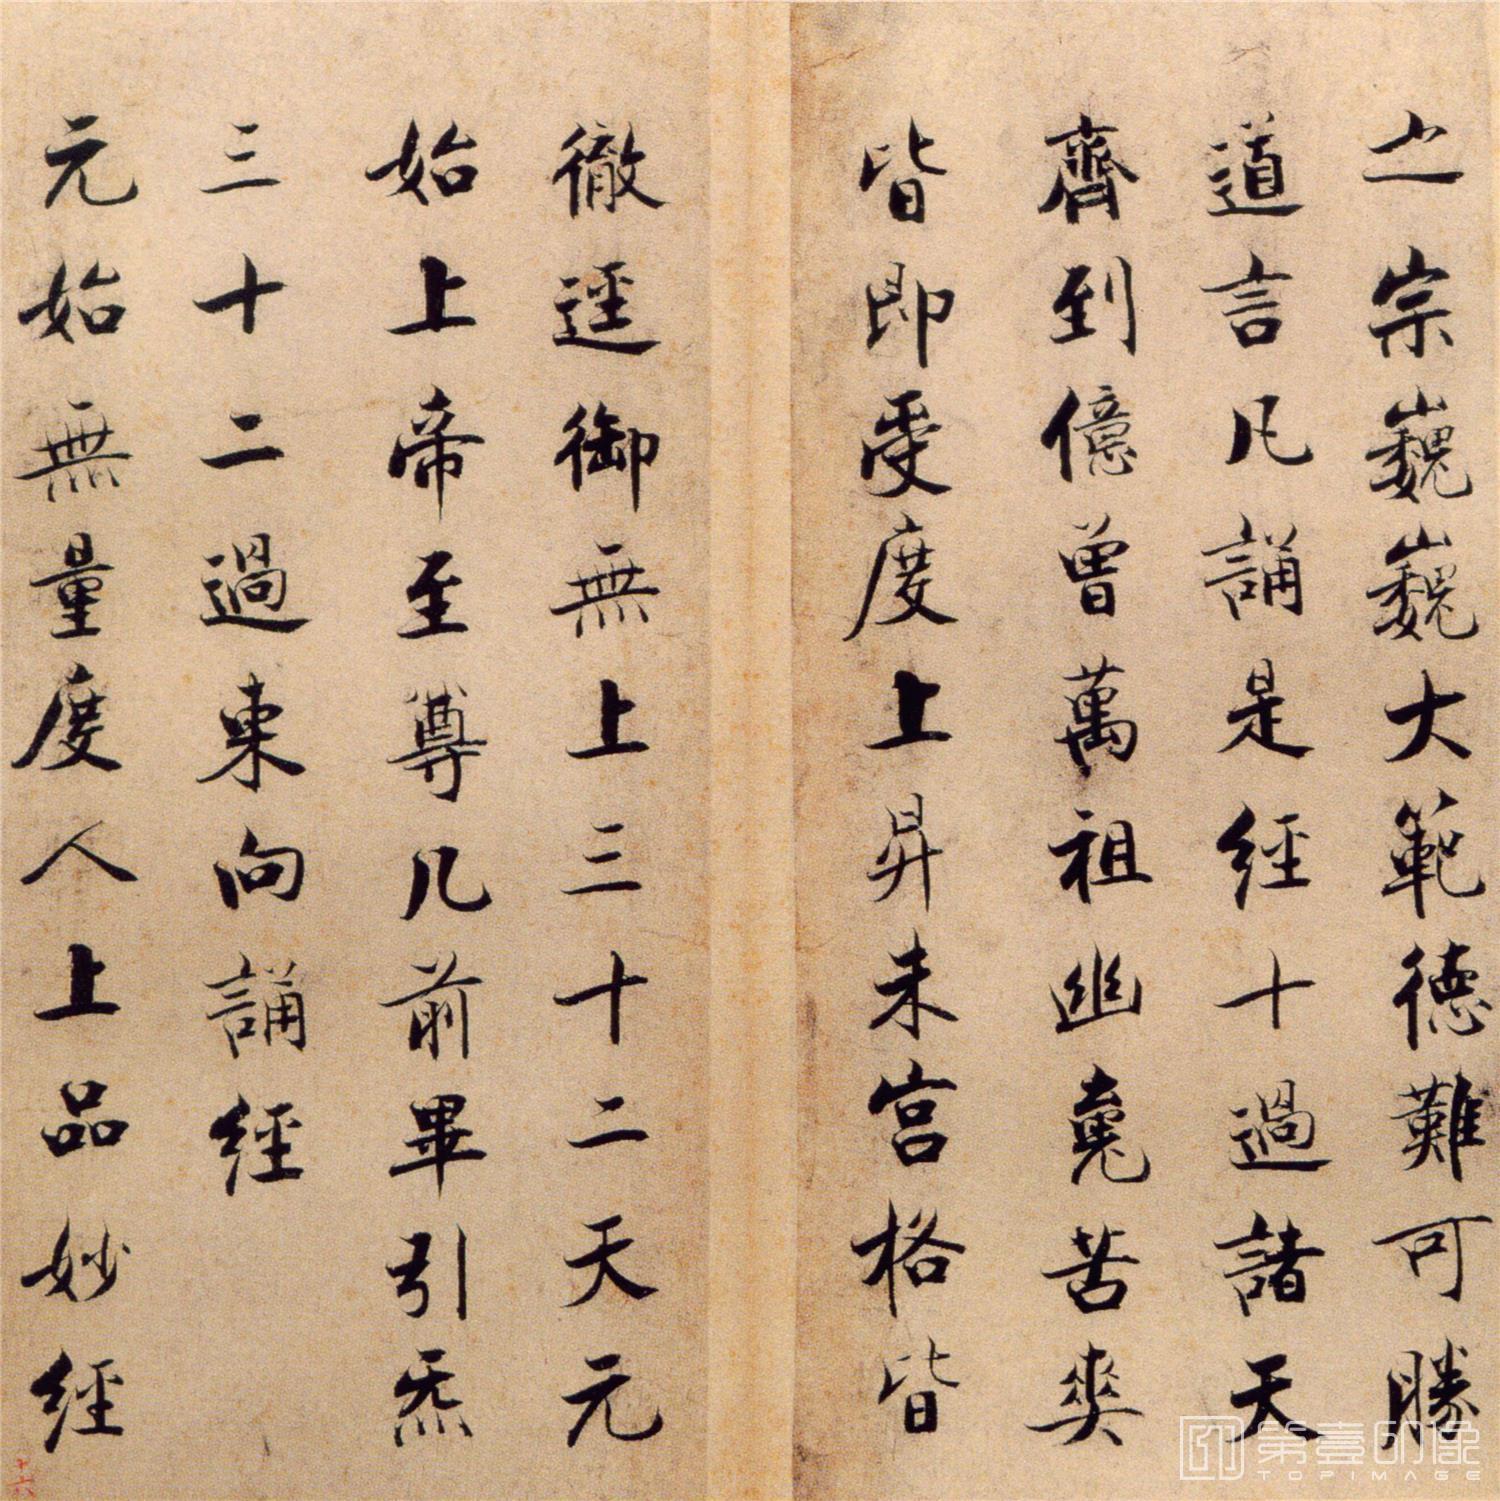 之宗巍巍大範德難可勝
道言凡誦是經十過諸天
齊到億曾萬祖幽䰟苦爽
皆即受度上昇朱宮格皆
徹逕御無上三十二天元
始上帝至尊几前畢引炁
三十二過東向誦經
元始無量度人上品妙經
十六
第壹印像
TOPIMAGE